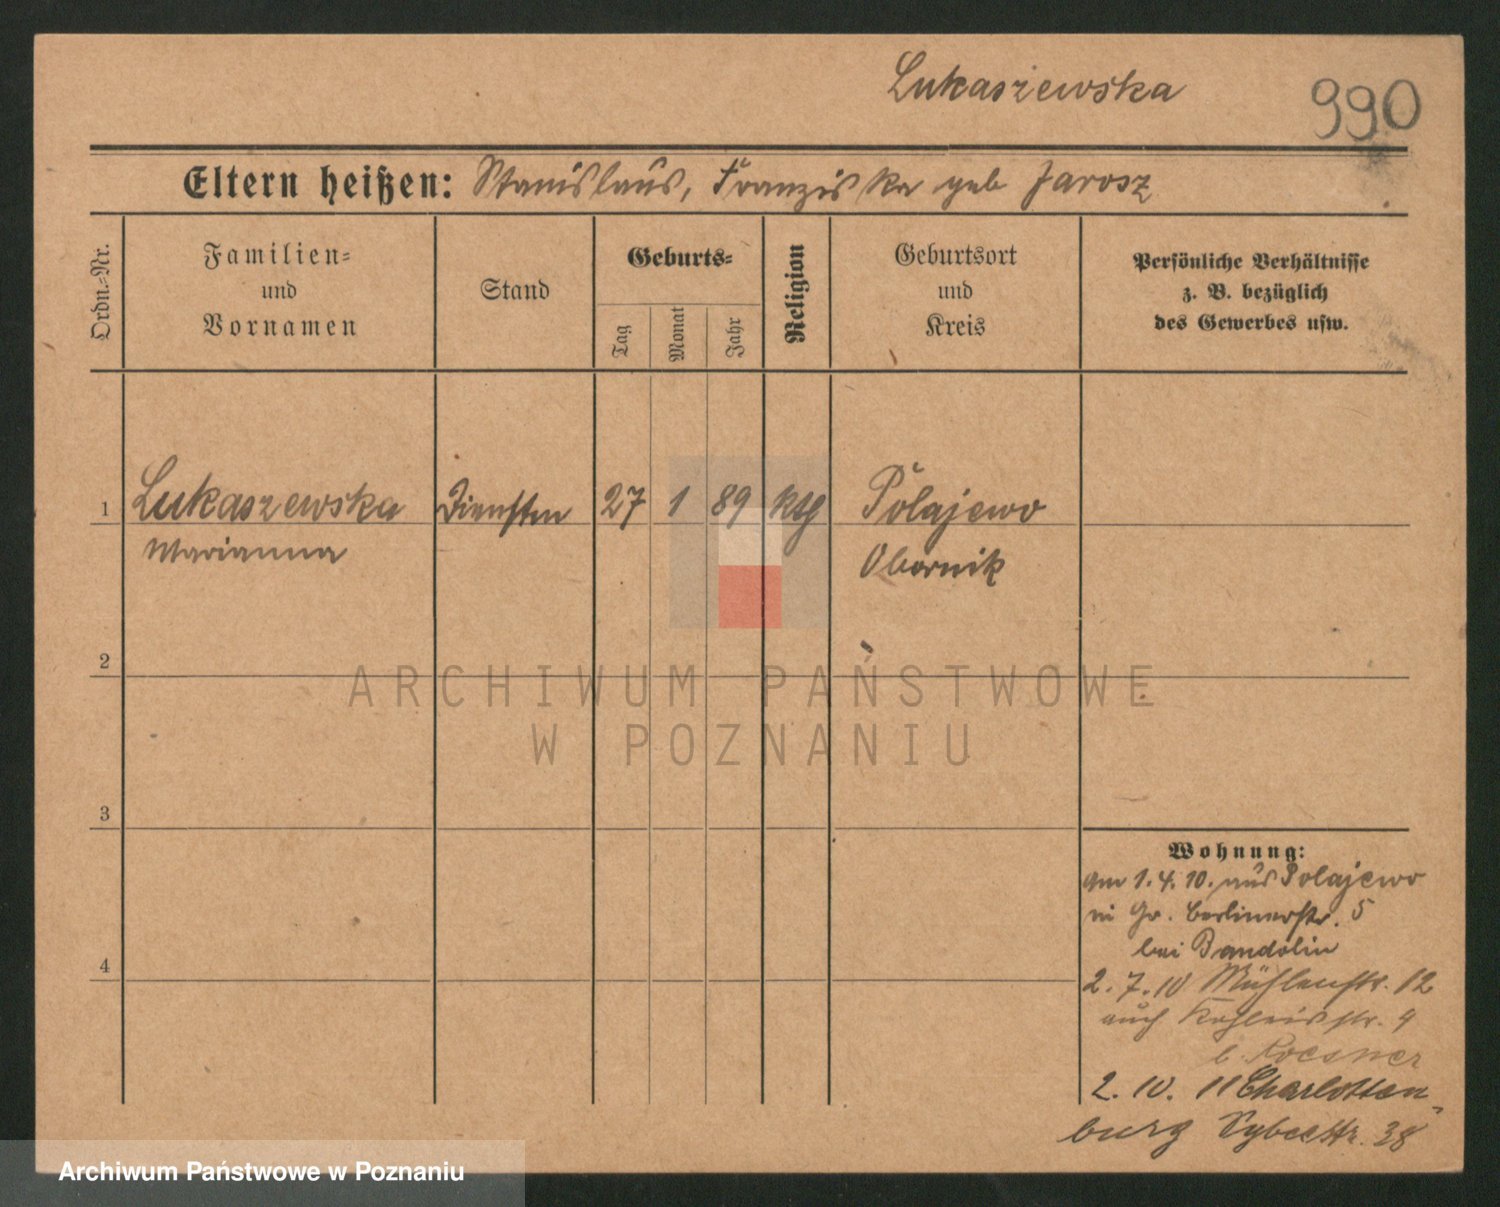 Lukaszewska
990
Eltern heißen: Stanislaus, Franziska geb Jarosz
Ordn.-Nr.
Familien-
und
Vornamen
Stand
Geburts-
Tag
Monat
Jahr
Religion
Geburtsort
und
Kreis
Persönliche Verhältnisse
z. B. bezüglich
des Gewerbes usw.
1 Lukaszewska Dienstm 27 1 89 kth Polajewo
Marianna Obornik
2
3
4
ARCHIWUM PAŃSTWOWE
W POZNANIU
Wohnung:
am 1.4.10. aus Polajewo
in Gr. Berlinerstr. 5
bei Bandolin
2.7.10 Mühlenstr. 12
auch str. 9
b. Roesner
2.10.11 Charlotten-
burg Sybelstr. 38
Archiwum Państwowe w Poznaniu